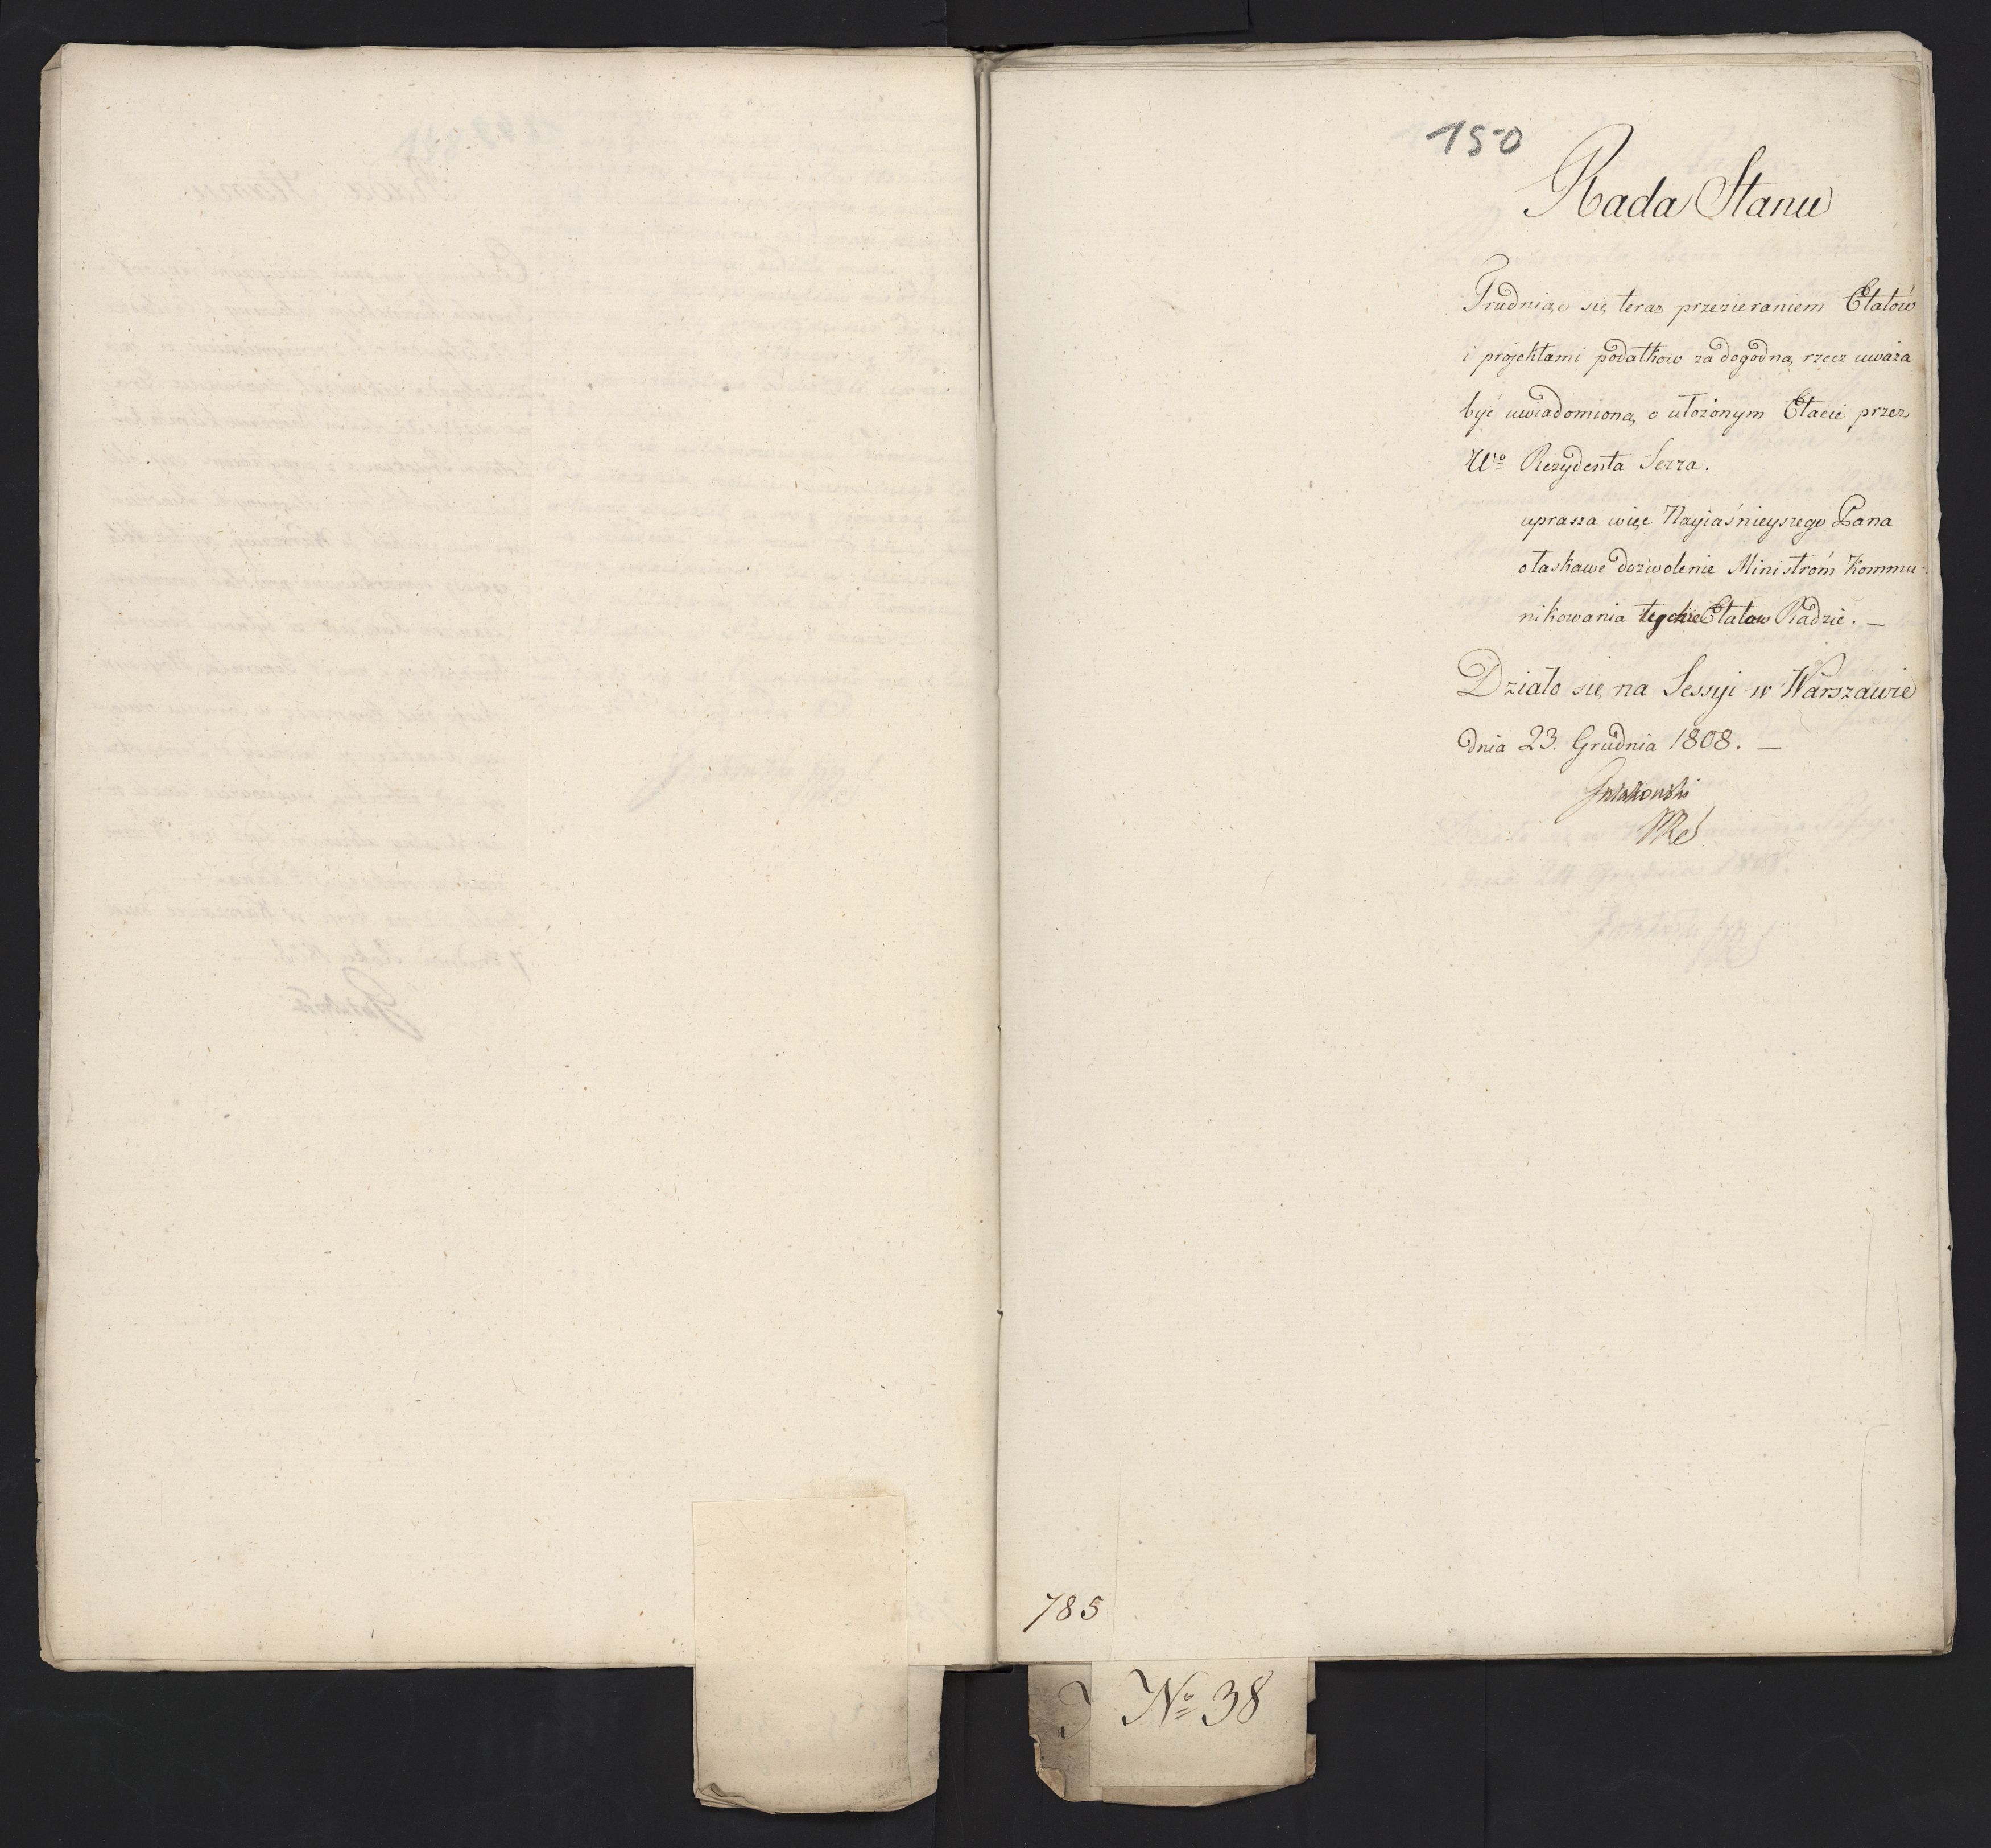 150
Rada Stanu
Trudniąc się teraz przezieraniem Etatów
i projektami podatkow za dogodną rzecz uważa
być uwiadomioną o ułożonym Etacie przez
Wo Rezydenta Serra.
uprasza więc Nayiaśnieyszego Pana
o łaskawe dozwolenie Ministrom Kommu-
nikowania tychże Etatow Radzie. —
Działo się na Sessyi w Warszawie
dnia 23. Grudnia 1808. —
Gutakowski
785
No 38